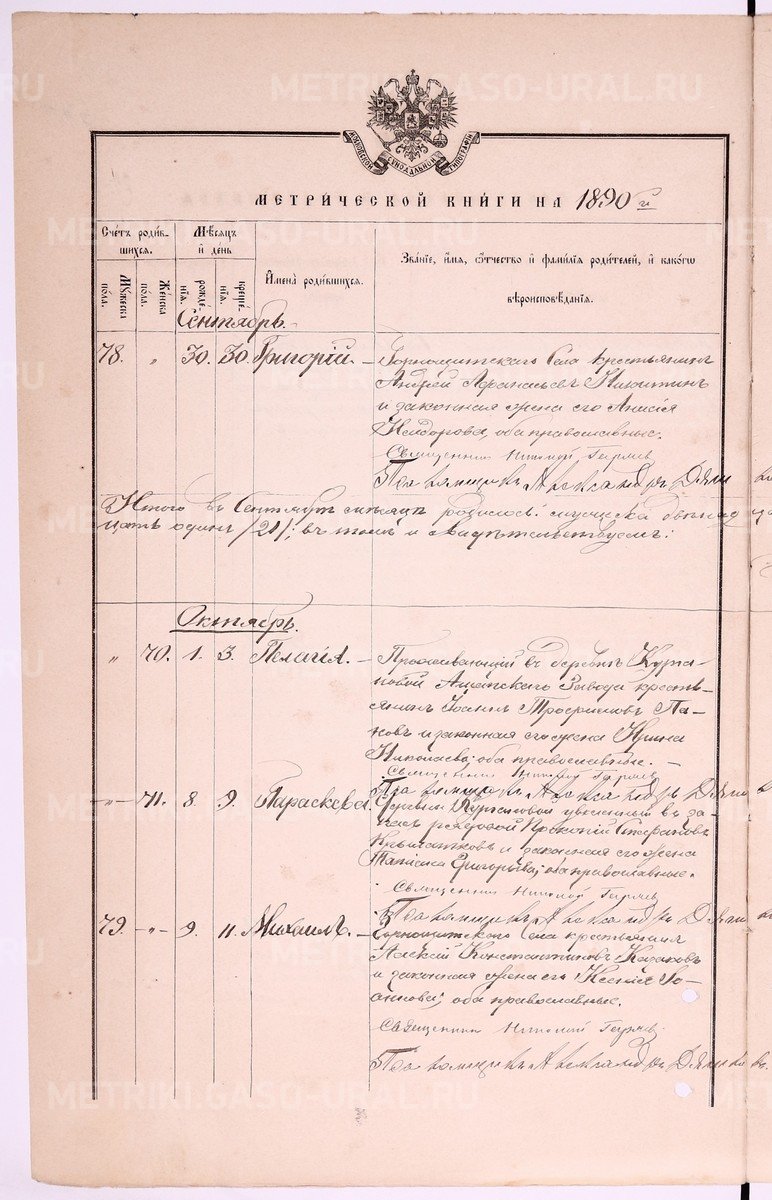 METRIKI.GASO-URAL.RU
МОСКОВСКОЙ СѴНОДАЛЬНОЙ ТИПОГРАФІИ
МЕТРИЧЕСКОЙ КНИГИ НА 1890 й
Счетъ родившихся.
Мѣсяцъ и день
Имена родившихся.
Званіе, имя, отчество и фамилія родителей, и какого вѣроисповѣданія.
Мужеска пола.
Женска пола.
рожденія.
крещенія.
Сентябрь.
78. " 30. 30. Григорій. — Горнощитскаго Села крестьянинъ
Андрей Афанасьевъ Никитинъ
и законная жена его Анисія
оба православные.
Священникъ Николай
Псаломщикъ Александръ
Итого въ Сентябрѣ мѣсяцѣ родилось: мужеска
цать одинъ /21/; въ томъ и свидѣтельствуемъ:
Октябрь.
" 70. 1. 3. Пелагія. — Проживающій въ деревнѣ Курга-
новой Завода кресть-
янинъ Іоаннъ Трофимовъ Па-
новъ и законная его жена Ирина
Николаева; оба православные. —
Священникъ Николай
Псаломщикъ Александръ
" 71. 8. 9. Параскева. Деревни Кургановой уволенный въ за-
пасъ рядовой Прокопій Стефановъ
и законная его жена
Татіана Григорьева; оба православные.
Священникъ Николай
Псаломщикъ Александръ
79. " 9. 11. Михаилъ. — Горнощитскаго Села крестьянинъ
Алексѣй Константиновъ Казаковъ
и законная жена его Ксенія Іо-
аннова; оба православные.
Священникъ Николай
Псаломщикъ Александръ